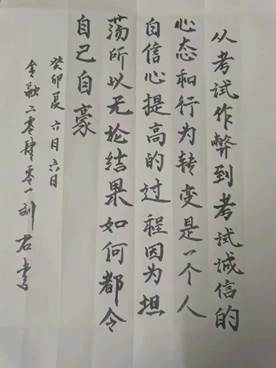 从考试作弊到考试诚信的
心态和行为转变是一个人
自信心提高的过程因为坦
荡所以无论结果如何都令
自己自豪
癸卯夏六月六日
金融二零肆零一刘君书